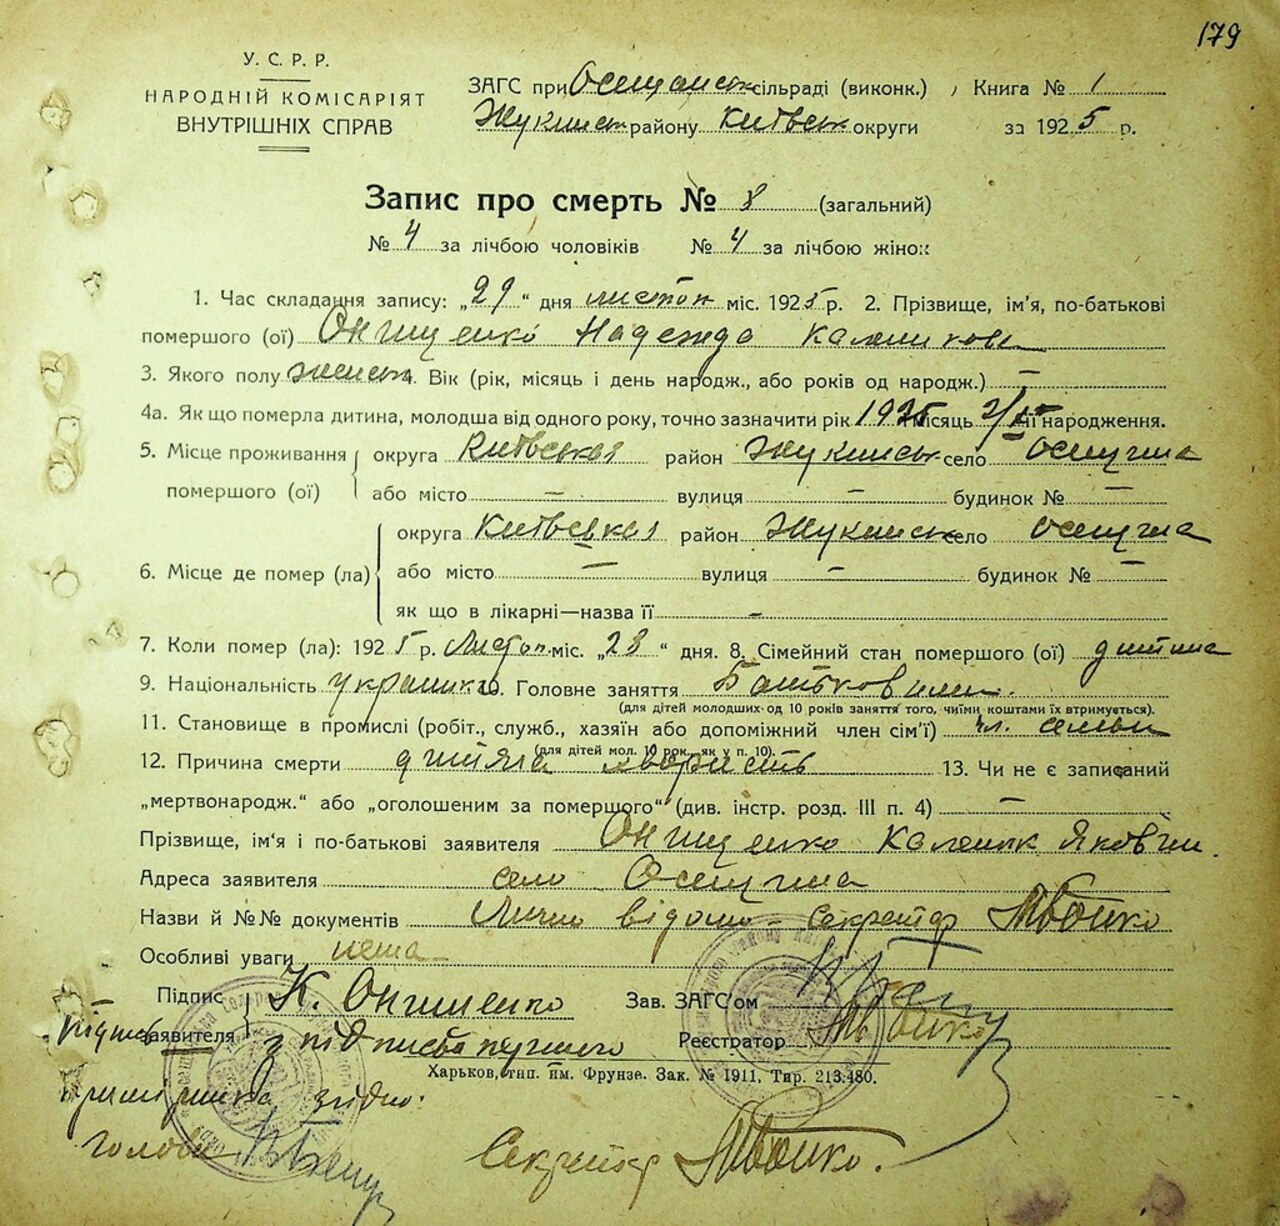 179
У. С. Р. Р.
НАРОДНІЙ КОМІСАРІЯТ
ВНУТРІШНІХ СПРАВ
ЗАГС при Осещанськ сільраді (виконк.) Книга № 1
Жукинськ району Київськ округи за 1925 р.
Запис про смерть № 8 (загальний)
№ 4 за лічбою чоловіків № 4 за лічбою жінок
1. Час складання запису: „29“ дня листоп міс. 1925 р. 2. Прізвище, ім'я, по-батькові
помершого (ої) Онищенко Надежда Калениковн
3. Якого полу жиноч 4. Вік (рік, місяць і день народж., або років од народж.) —
4а. Як що померла дитина, молодша від одного року, точно зазначити рік 1925 місяць її народження.
5. Місце проживання округа Київськая район Жукинськ село Осещина
помершого (ої) або місто — вулиця — будинок № —
округа Київськая район Жукинськ село Осещина
6. Місце де помер (ла) або місто — вулиця — будинок № —
як що в лікарні—назва її —
7. Коли помер (ла): 1925 р. Листоп міс. „28“ дня. 8. Сімейний стан помершого (ої) дитина
9. Національність україн 10. Головне заняття Батьков
(для дітей молодших од 10 років заняття того, чиїми коштами їх втримується).
11. Становище в промислі (робіт., служб., хазяїн або допоміжний член сім'ї) чл. семьи
(для дітей мол. 10 рок., як у п. 10).
12. Причина смерти дитяча хвористь 13. Чи не є записаний
„мертвонародж.“ або „оголошеним за помершого“ (див. інстр. розд. III п. 4) —
Прізвище, ім'я і по-батькові заявителя Онищенко Каленик Якович
Адреса заявителя село Осещина
Назви й №№ документів Лично відомо – секретар Бойко
Особливі уваги нема
Підпис К. Онищенко Зав. ЗАГС'ом
заявителя з підписав Реєстратор Бойко
Харьков, тип. им. Фрунзе. Зак. № 1911, Тир. 213.480.
підпись
згідно:
Голова
Секретар Бойко.